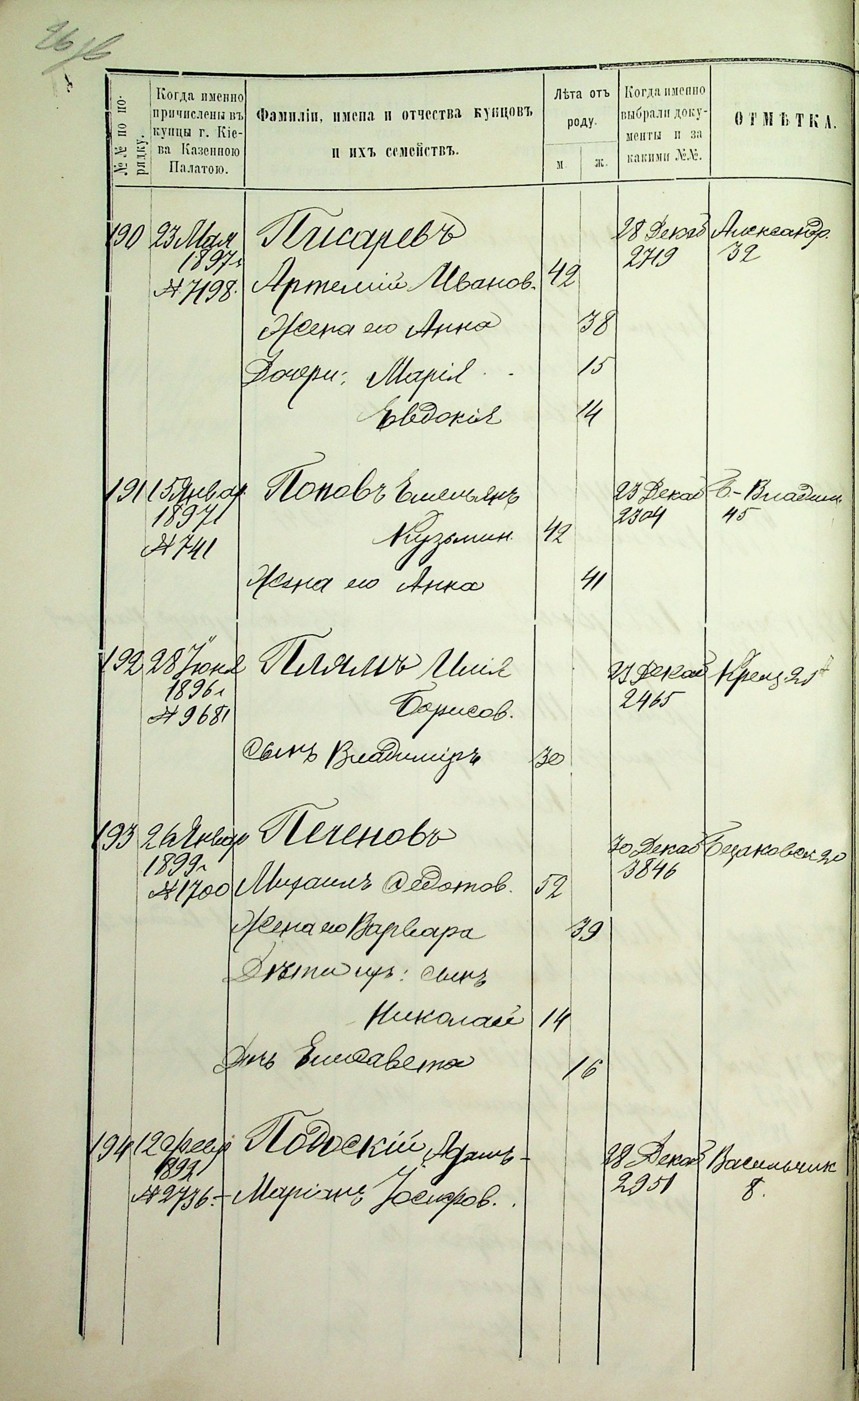 №№ по порядку.
Когда именно
причислены въ
купцы г. Кіе-
ва Казенною
Палатою.
Фамиліи, имена и отчества купцовъ
и ихъ семействъ.
Лѣта отъ
роду.
м.
ж.
Когда именно
выбрали доку-
менты и за
какими №№.
ОТМѢТКА.
190 23 Мая Писаревъ 28 Декаб Александр.
1897 г. 2719 32
№ 7198. Артемій Иванов. 42
Жена его Анна 38
Дочери: Марія 15
Евдокія 14
191 15 Январ Поповъ Емельянъ 23 Декаб Б-Владим
1897 2304 45
№ 741 Кузьмин. 42
Жена его Анна 41
192 28 Іюня Плямъ Илія 23 Декаб Крещ. 25
1896 г. Борисов. 2465
№ 9681
Сынъ Владиміръ 30
193 26 Январ Печеновъ 30 Декаб Безаковск 20
1899 г. 3846
№ 1700 Михаилъ Федотов. 52
Жена его Варвара 39
Дѣти ихъ: сынъ
Николай 14
Дчь Елисавета 16
194 12 Февр Подоскій Адамъ- 28 Декаб Васильчик
1892 2951 8.
№ 2736.- Маріанъ Іосифов.